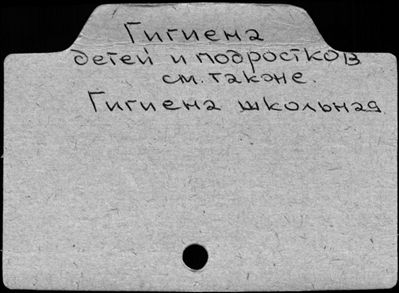 Гигиена
детей и подростков
см. также.
Гигиена школьная